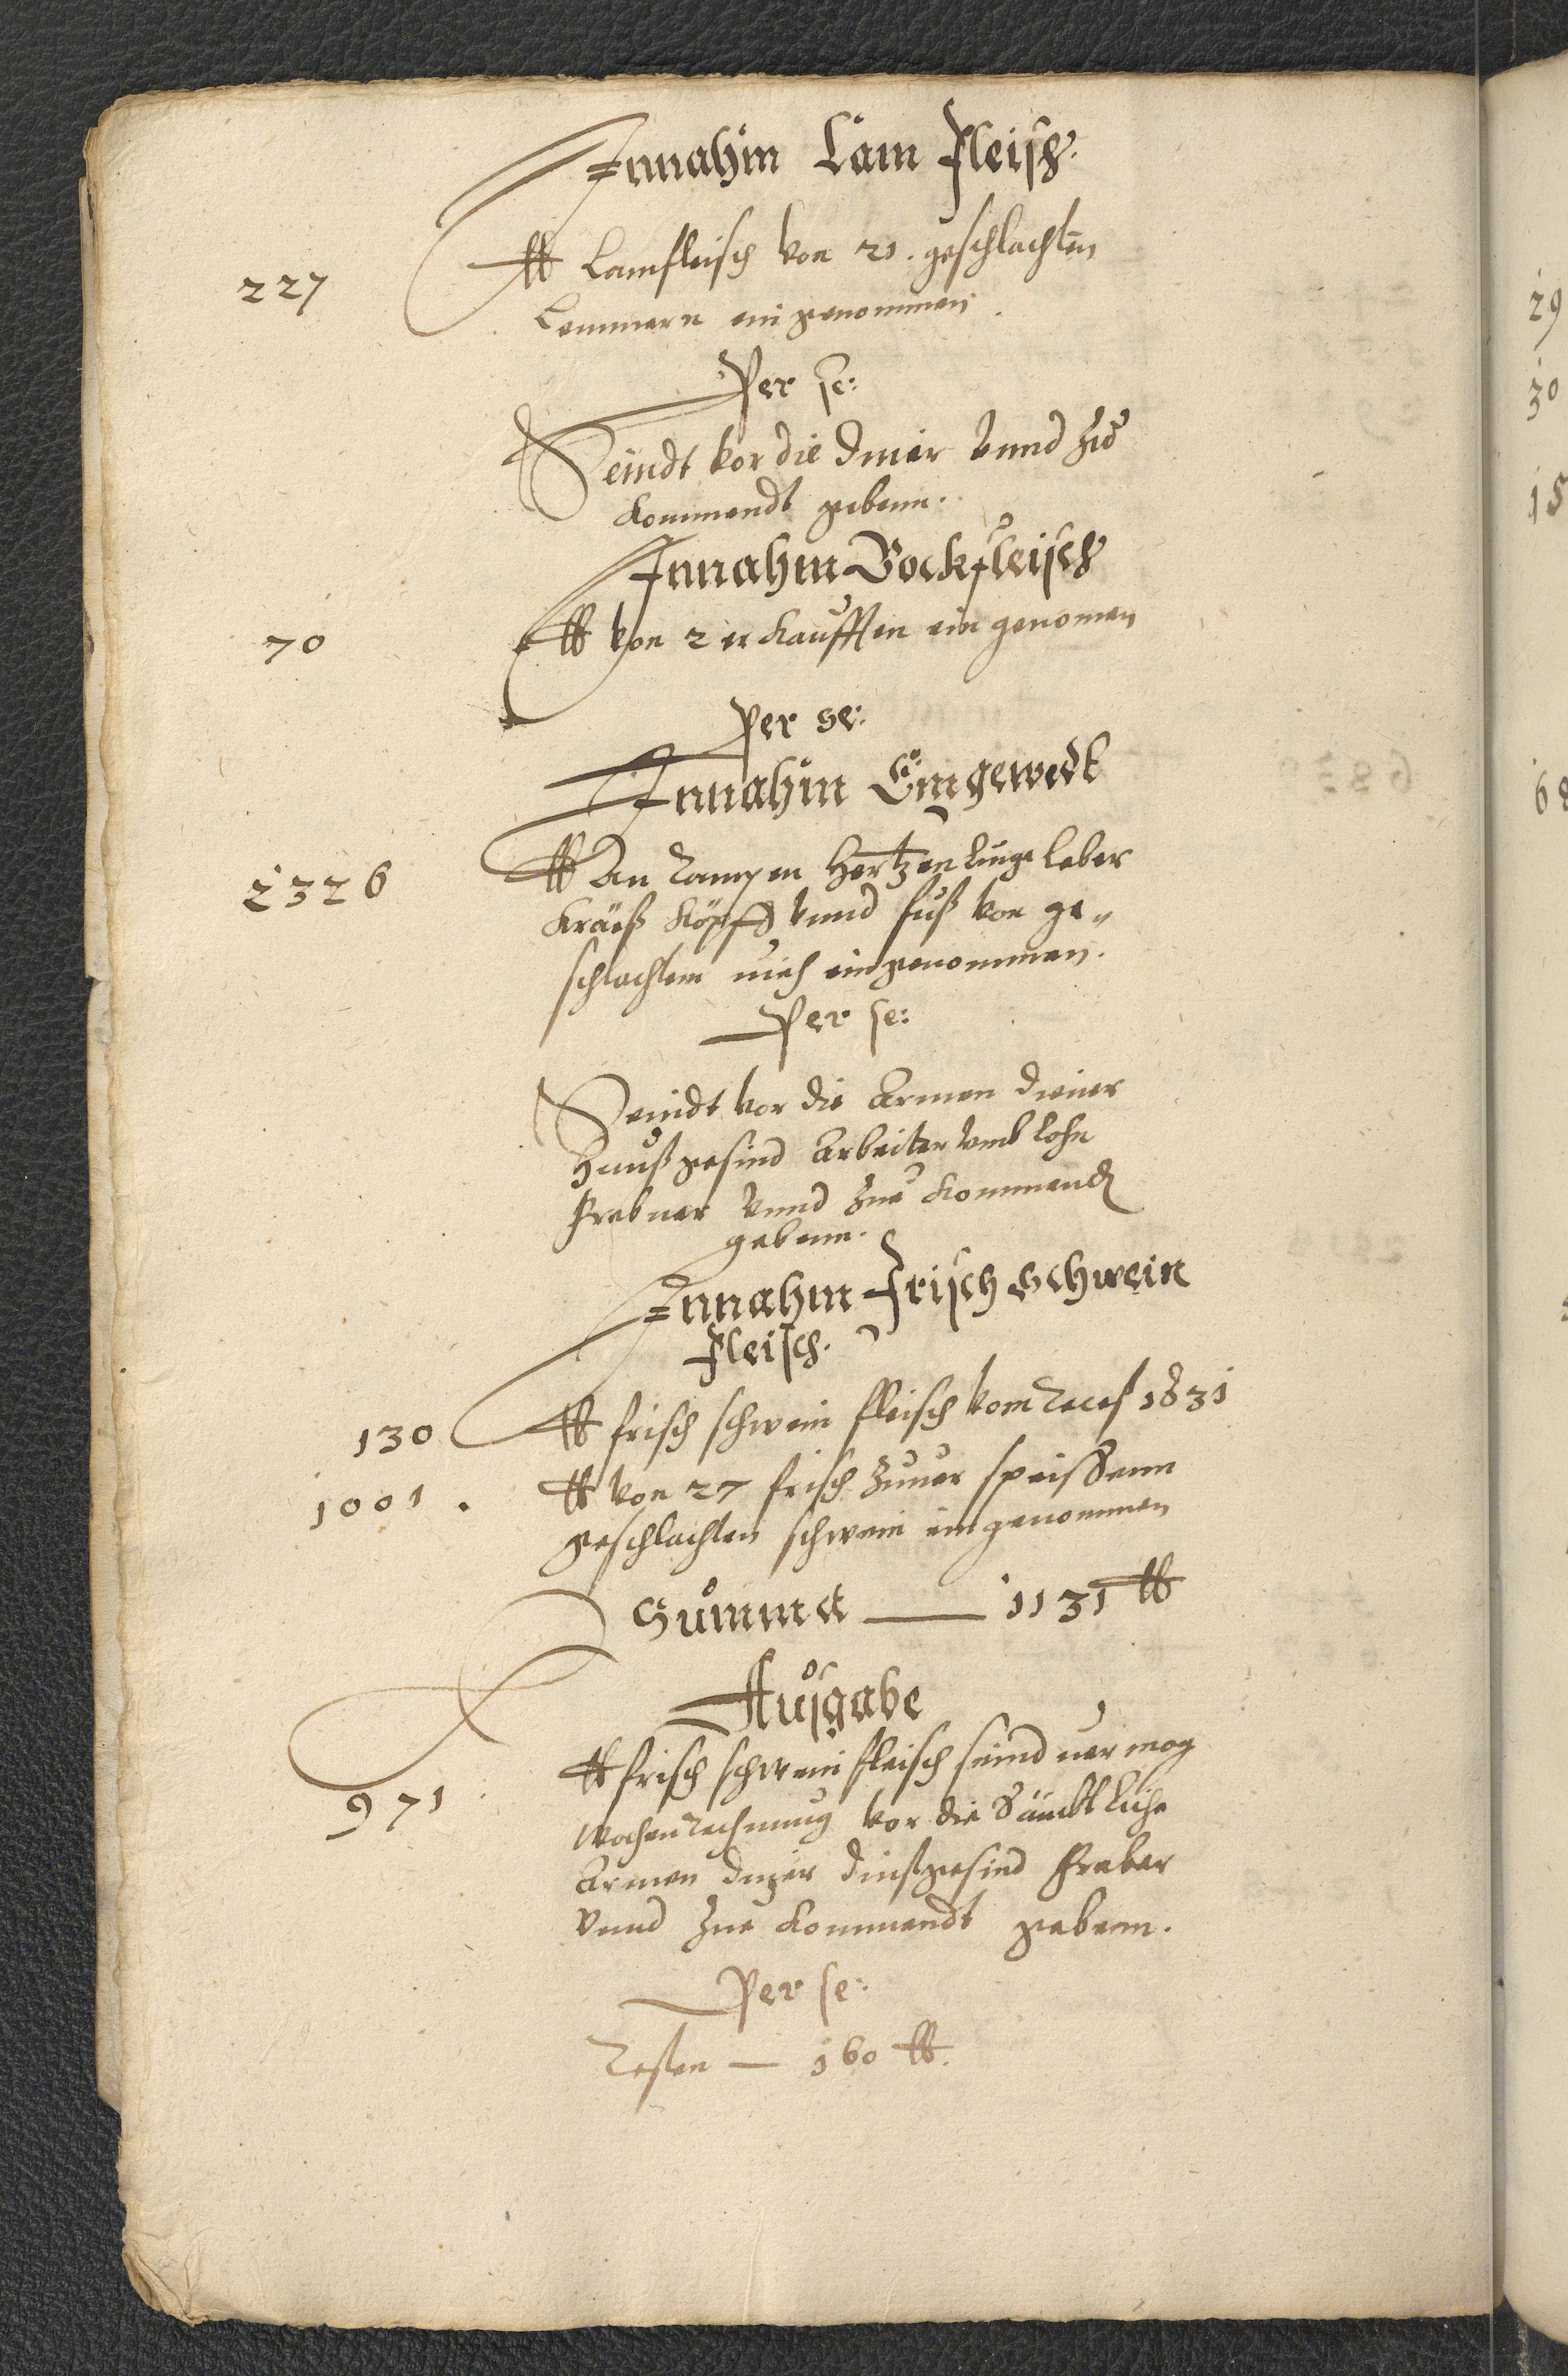 Innahm Lam Fleisch.
227 ℔ Lamfleisch von 21. geschlachten
Lemmern ein genommen.
Per se:
Seindt vor die diner vnnd zue
Kommendt gebenn.
Innahm Bockfleisch
70 ℔ von 2 erkaufften ein genomen
Per se:
Innahm Eingeweidt
2326 ℔ An Rampen Hertzen Lunge leber
Kräeß Köpff vnnd fuß von ge-
schlachtem vieh eingenommen.
Per se:
Seindt vor die Armen diener
Haußgesind Arbeiter vmb lohn
Frebner vnnd zue Kommendt
gebenn.
Innahm Frisch Schwein
Fleisch.
130 ℔ frisch schwein fleisch vom Reces 1631
1001. ℔ von 27 frisch zuuer speissenn
geschlachten schwein eingenommen
Summa — 1131 ℔
Ausgabe
971 ℔ frisch schwein fleisch seind vermög
Wochen Rechnung vor die Sämbtliche
Armen diner dinstgesind Freber
vnnd zue Kommendt gebenn.
Per se:
Resten — 160 ℔.
29
30
15
68